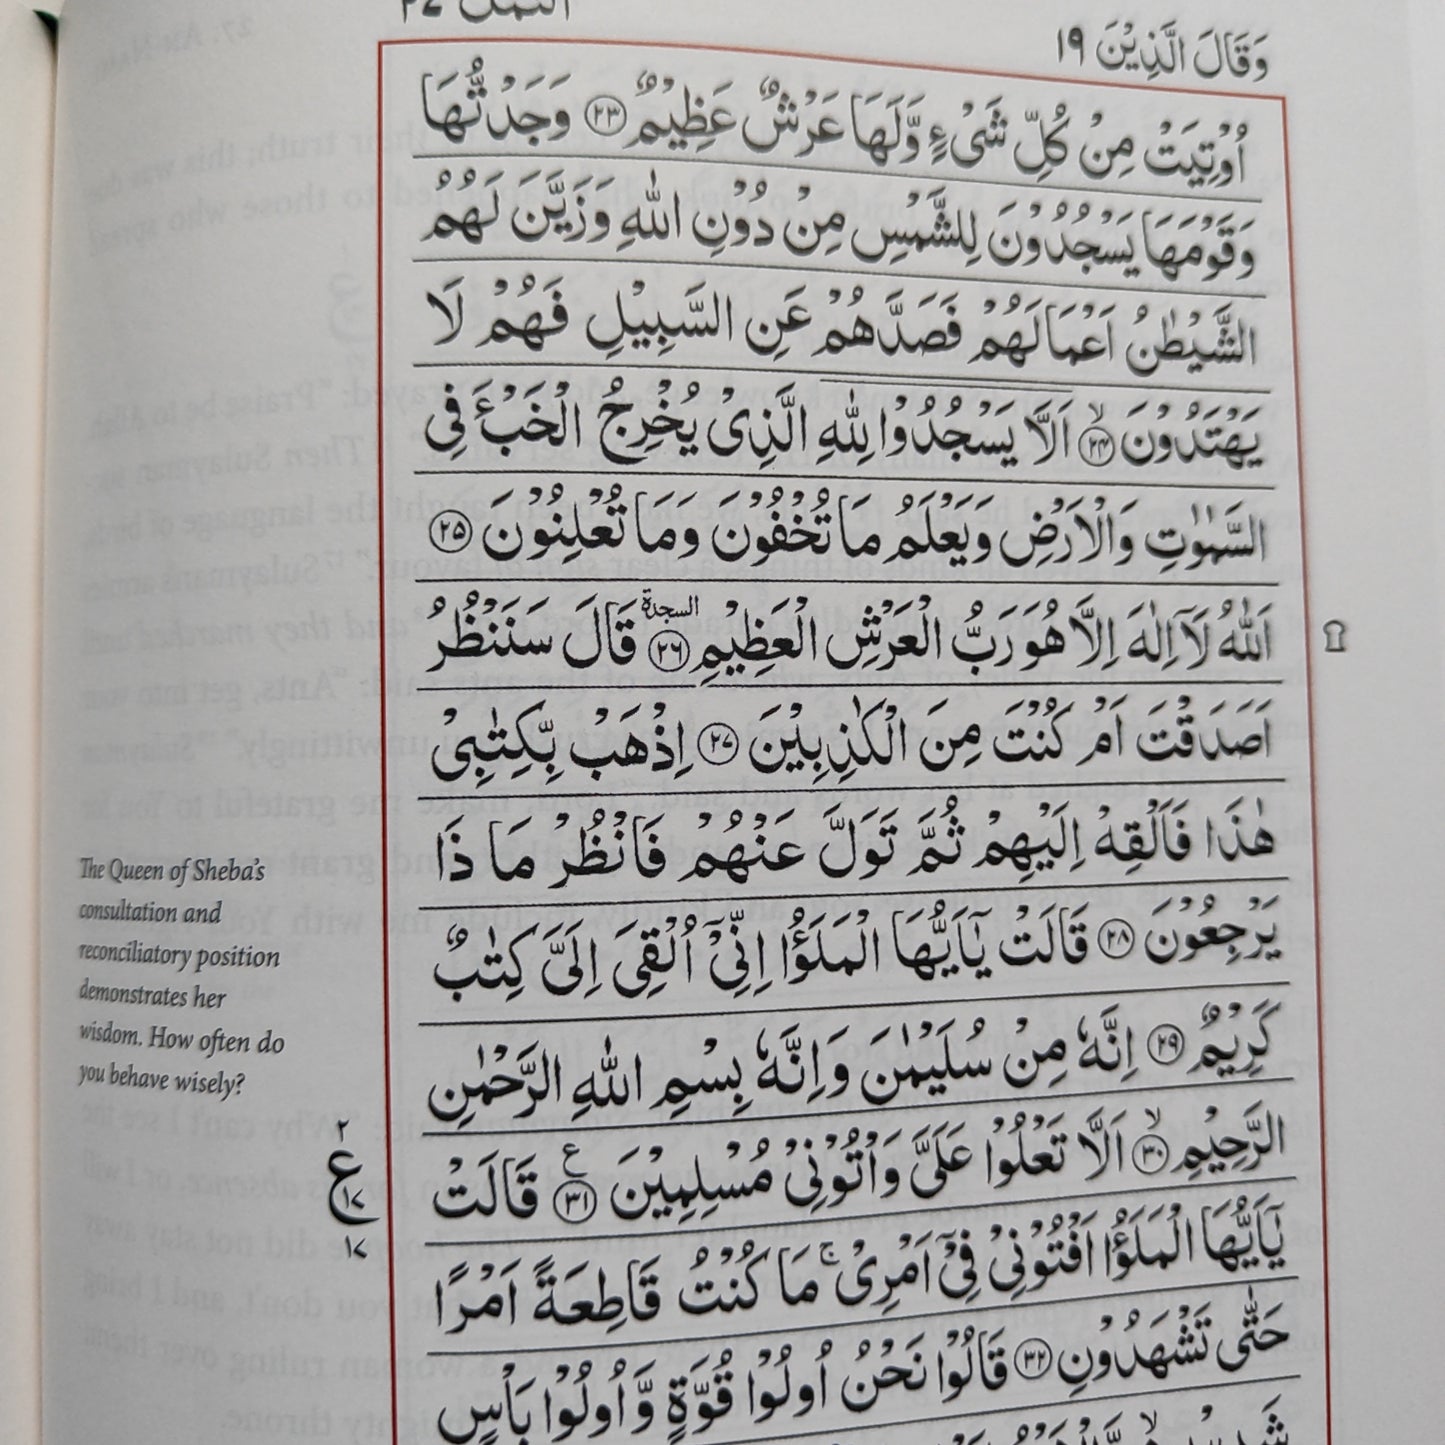 وَقَالَ الَّذِيْنَ ١٩
النمل ٢٧
اُوْتِيَتْ مِنْ كُلِّ شَىْءٍ وَّلَهَا عَرْشٌ عَظِيْمٌ ٢٣ وَجَدْتُّهَا
وَقَوْمَهَا يَسْجُدُوْنَ لِلشَّمْسِ مِنْ دُوْنِ اللّٰهِ وَزَيَّنَ لَهُمُ
الشَّيْطٰنُ اَعْمَالَهُمْ فَصَدَّهُمْ عَنِ السَّبِيْلِ فَهُمْ لَا
يَهْتَدُوْنَ ۙ ٢٤ اَلَّا يَسْجُدُوْا لِلّٰهِ الَّذِىْ يُخْرِجُ الْخَبْءَ فِى
السَّمٰوٰتِ وَالْاَرْضِ وَيَعْلَمُ مَا تُخْفُوْنَ وَمَا تُعْلِنُوْنَ ٢٥
اَللّٰهُ لَاۤ اِلٰهَ اِلَّا هُوَ رَبُّ الْعَرْشِ الْعَظِيْمِ السجدة ٢٦ قَالَ سَنَنْظُرُ
اَصَدَقْتَ اَمْ كُنْتَ مِنَ الْكٰذِبِيْنَ ٢٧ اِذْهَبْ بِّكِتٰبِىْ
هٰذَا فَاَلْقِهْ اِلَيْهِمْ ثُمَّ تَوَلَّ عَنْهُمْ فَانْظُرْ مَا ذَا
يَرْجِعُوْنَ ٢٨ قَالَتْ يٰۤاَيُّهَا الْمَلَؤُا اِنِّىْۤ اُلْقِىَ اِلَىَّ كِتٰبٌ
كَرِيْمٌ ٢٩ اِنَّهٗ مِنْ سُلَيْمٰنَ وَاِنَّهٗ بِسْمِ اللّٰهِ الرَّحْمٰنِ
الرَّحِيْمِ ۙ ٣٠ اَلَّا تَعْلُوْا عَلَىَّ وَاْتُوْنِىْ مُسْلِمِيْنَ ع ٣١ قَالَتْ
يٰۤاَيُّهَا الْمَلَؤُا اَفْتُوْنِىْ فِىْۤ اَمْرِىْ ۚ مَا كُنْتُ قَاطِعَةً اَمْرًا
حَتّٰى تَشْهَدُوْنِ ٣٢ قَالُوْا نَحْنُ اُولُوْا قُوَّةٍ وَّاُولُوْا بَاْسٍ
The Queen of Sheba's
consultation and
reconciliatory position
demonstrates her
wisdom. How often do
you behave wisely?
٢
ع
١٧
١٧